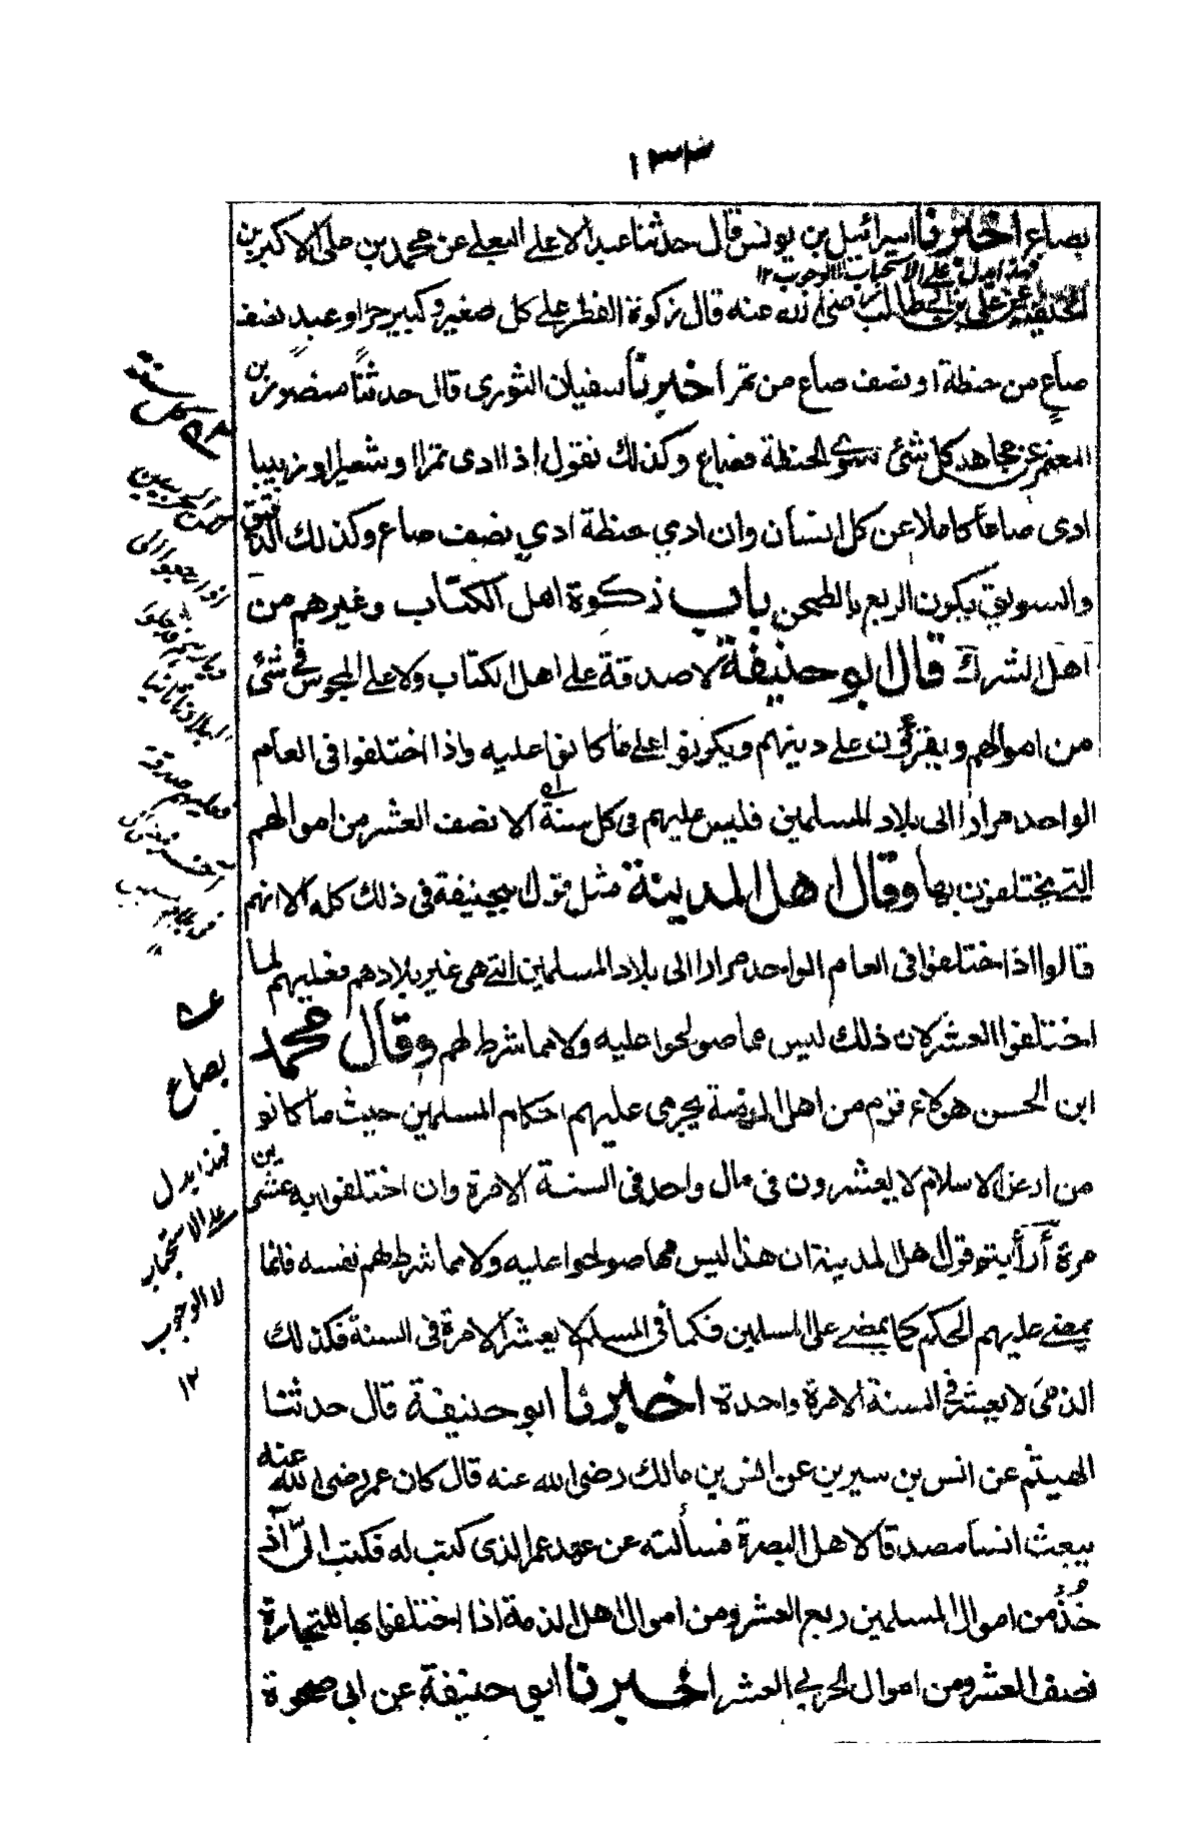 ١٣٢
بصاع اخبرنا اسرائيل بن يونس قال حدثنا عبد الاعلى الثعلبي عن محمد بن علي الاكبر بن
فهذا يدل على الاستحباب لا الوجوب ١٢
الحنفية عن علي بن ابي طالب رضي الله عنه قال زكوة الفطر على كل صغير وكبير حر او عبد نصف
صاع من حنطة او نصف صاع من تمر اخبرنا سفيان الثوري قال حدثنا منصور بن
المعتمر عن مجاهد كل شئ سوى الحنطة فصاع وكذلك نقول اذا ادى تمرا او شعيرا او زبيبا
ادى صاعا كاملا عن كل انسان وان ادي حنطة ادي بنصف صاع وكذلك الدقيق
والسويق يكون الربع بالطحن باب زكوة اهل الكتاب وغيرهم من
اهل الشرك قال ابو حنيفة لا صدقة على اهل الكتاب ولا على المجوس في شئ
من اموالهم ويقرون على دينهم ويكونوا على ما كانوا عليه واذا اختلفوا في العام
الواحد مرارا الى بلاد المسلمين فليس عليهم في كل سنة الا نصف العشر من اموالهم
التي يختلفون بها وقال اهل المدينة مثل قول ابيحنيفة في ذلك كله الا انهم
قالوا اذا اختلفوا في العام الواحد مرارا الى بلاد المسلمين التي هي غير بلادهم فعليهم لما
اختلفوا العشر لان ذلك ليس مما صولحوا عليه ولا مما شرط لهم وقال محمد
ابن الحسن هؤلاء قوم من اهل الذمة يجرى عليهم احكام المسلمين حيث ما كانوا
من ارض الاسلام لا يعشرون في مال واحد في السنة الا مرة وان اختلفوا به عشرين
مرة أرأيتم قول اهل المدينة ان هذا ليس مما صولحوا عليه ولا مما شرط لهم نفسه فانما
يمضي عليهم الحكم كما يمضي على المسلمين فكما أن المسلم لا يعشر الا مرة في السنة فكذلك
الذمي لا يعشر في السنة الا مرة واحدة اخبرنا ابو حنيفة قال حدثنا
الهيثم عن انس بن سيرين عن انس بن مالك رضي الله عنه قال كان عمر رضي الله عنه
يبعث انسا مصدقا لاهل البصرة فسألته عن عهد عمر الذي كتب له فكتب الىّ ان
خُذ من اموال المسلمين ربع العشر ومن اموال اهل الذمة اذا اختلفوا بها للتجارة
نصف العشر ومن اموال الحربي العشر اخبرنا ابو حنيفة عن ابي صخرة
بصاع
فهذا يدل
على الاستحباب
لا الوجوب
١٢